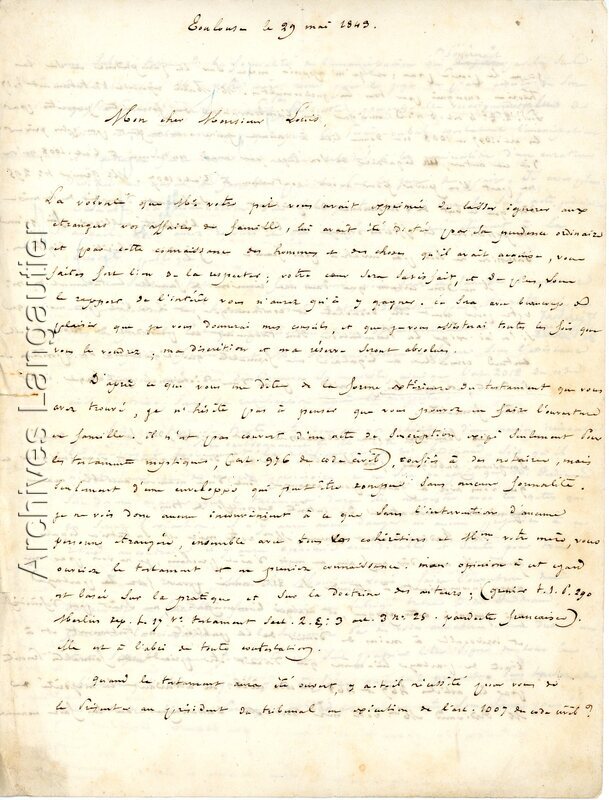 Toulouse le 29 mai 1843.
Mon cher Monsieur Louis,
La volonté que Mr votre père vous avait exprimée de laisser ignorer aux
étrangers vos affaires de famille, lui avait été dictée par sa prudence ordinaire
et par cette connaissance des hommes et des choses qu'il avait acquise, vous
faites fort bien de la respecter; votre cœur sera satisfait, et de plus, sous
le rapport de l'intérêt vous n'aurez qu'à y gagner. Ce sera avec beaucoup de
plaisir que je vous donnerai mes conseils, et que je vous assisterai toutes les fois que
vous le voudrez; ma discrétion et ma réserve seront absolues.
D'après ce que vous me dites de la forme extérieure du testament que vous
avez trouvé, je n'hésite pas à penser que vous pouvez en faire l'ouverture
en famille. il n'est pas couvert d'un acte de suscription exigé seulement pour
les testaments mystiques, (art. 976 du code civil), confiés à des notaires, mais
seulement d'une enveloppe qui peut être rompue sans aucune formalité.
je ne vois donc aucun inconvénient à ce que sans l'intervention d'aucune
personne étrangère, ensemble avec tous vos cohéritiers et Mme votre mère, vous
ouvriez le testament et en preniez connaissance; mon opinion à cet égard
est basée sur la pratique et sur la doctrine des auteurs; (grenier t. 1. p. 290
Merlin rep. t. 17 vo testament sect. 2. §. 3 art. 3 no. 28. pandectes françaises).
elle est à l'abri de toute contestation.
quand le testament aura été ouvert y a-t-il nécessité pour vous de
le présenter au président du tribunal en exécution de l'art. 1007 du code civil?
Archives Langautier